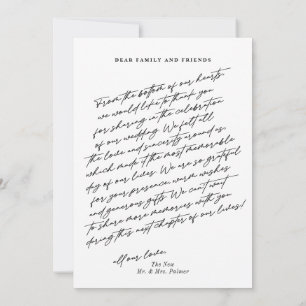 DEAR FAMILY AND FRIENDS
From the bottom of our hearts
we would like to thank you
for sharing in the celebration
of our wedding. We felt all
the love and sincerity around us
which made it the most memorable
day of our lives. We are so grateful
for your presence, warm wishes
and generous gifts. We can't wait
to share more memories with you
during this next chapter of our lives!
all our love,
The New
Mr. & Mrs. Palmer